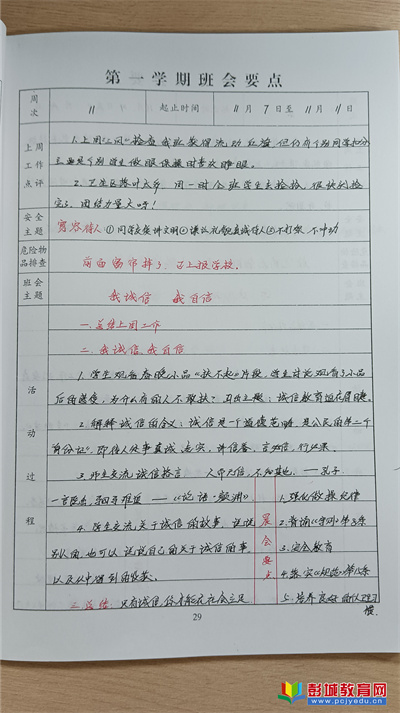 第一学期班会要点
周次 11 起止时间 11月7日至11月11日
上周工作点评
1.上周"三风"检查我班获得流动红旗,但仍有个别同学扣分
主要是个别学生做眼保健操时喜欢睁眼。
2.卫生区落叶太多,用一时全班学生去捡拾,很快就捡
完了,团结力量大呀!
安全主题
宽容待人 ①同学交往讲文明②谦让礼貌真诚待人③不打架 不冲动
危险物品排查
前面窗帘掉了,已上报学校。
班会主题
我诚信 我自信
活动过程
一.总结上周工作
二.我诚信,我自信
1.学生观看春晚小品《扶不起》片段,学生讨论观看了小品
后的感受,为什么有的人不敢扶?
2.解释诚信的含义:诚信是一个道德范畴,是公民的第二个
身份证",即待人处事真诚、老实、讲信誉,言必信,行必果。
3.师生交流诚信格言: 人而无信,不知其可也。——孔子
一言既出,驷马难追 ——《论语·颜渊》
4.师生交流关于诚信的故事,说说
别人的,也可以说说自己的关于诚信的事
以及从中得到的收获。
三.总结:只有诚信,你才能在社会立足
晨会要点
1.强化做操纪律
2.背诵《守则》第3条
3.安全教育
4.落实《规范》第13条
5.培养良好的学习习
惯.
29
彭城教育网
www.pcjyedu.cn